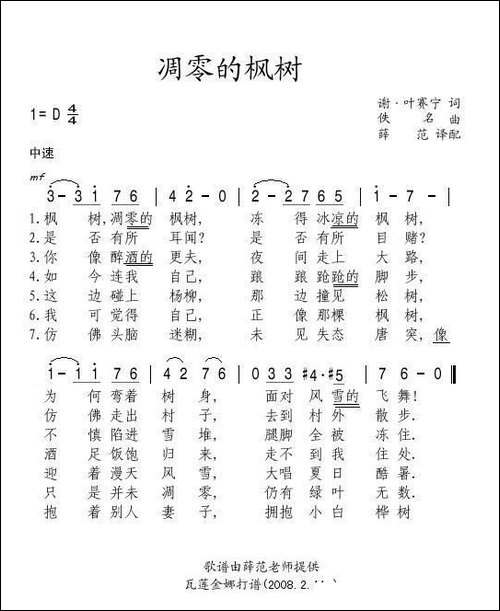 凋零的枫树
1= D 4/4
谢·叶赛宁 词
佚 名 曲
薛 范 译配
中速
mf
3 - 3 1 7 6 | 4 2 - 0 | 2 - 2 7 6 5 | 1 - 7 - |
1.枫 树,凋零的 枫树, 冻 得冰凉的 枫 树,
2.是 否有所 耳闻? 是 否有所 目 睹?
3.你 像醉酒的 更夫, 夜 间走上 大 路,
4.如 今连我 自己, 踉 踉跄跄的 脚 步,
5.这 边碰上 杨柳, 那 边撞见 松 树,
6.我 可觉得 自己, 正 像那棵 枫 树,
7.仿 佛头脑 迷糊, 未 见失态 唐 突,像
1 - 1 1 7 6 | 4 2 7 6 | 0 3 3 #4·#5 | 7 6 - 0 ‖
为 何弯着 树 身, 面对 风 雪的 飞 舞!
仿 佛走出 村 子, 去到 村 外 散 步.
不 慎陷进 雪 堆, 腿脚 全 被 冻 住.
酒 足饭饱 归 来, 走不 到 我 住 处.
迎 着漫天 风 雪, 大唱 夏 日 酷 暑.
只 是并未 凋 零, 仍有 绿 叶 无 数.
抱 着别人 妻 子, 拥抱 小 白 桦 树
歌谱由薛范老师提供
瓦莲金娜打谱(2008.2.